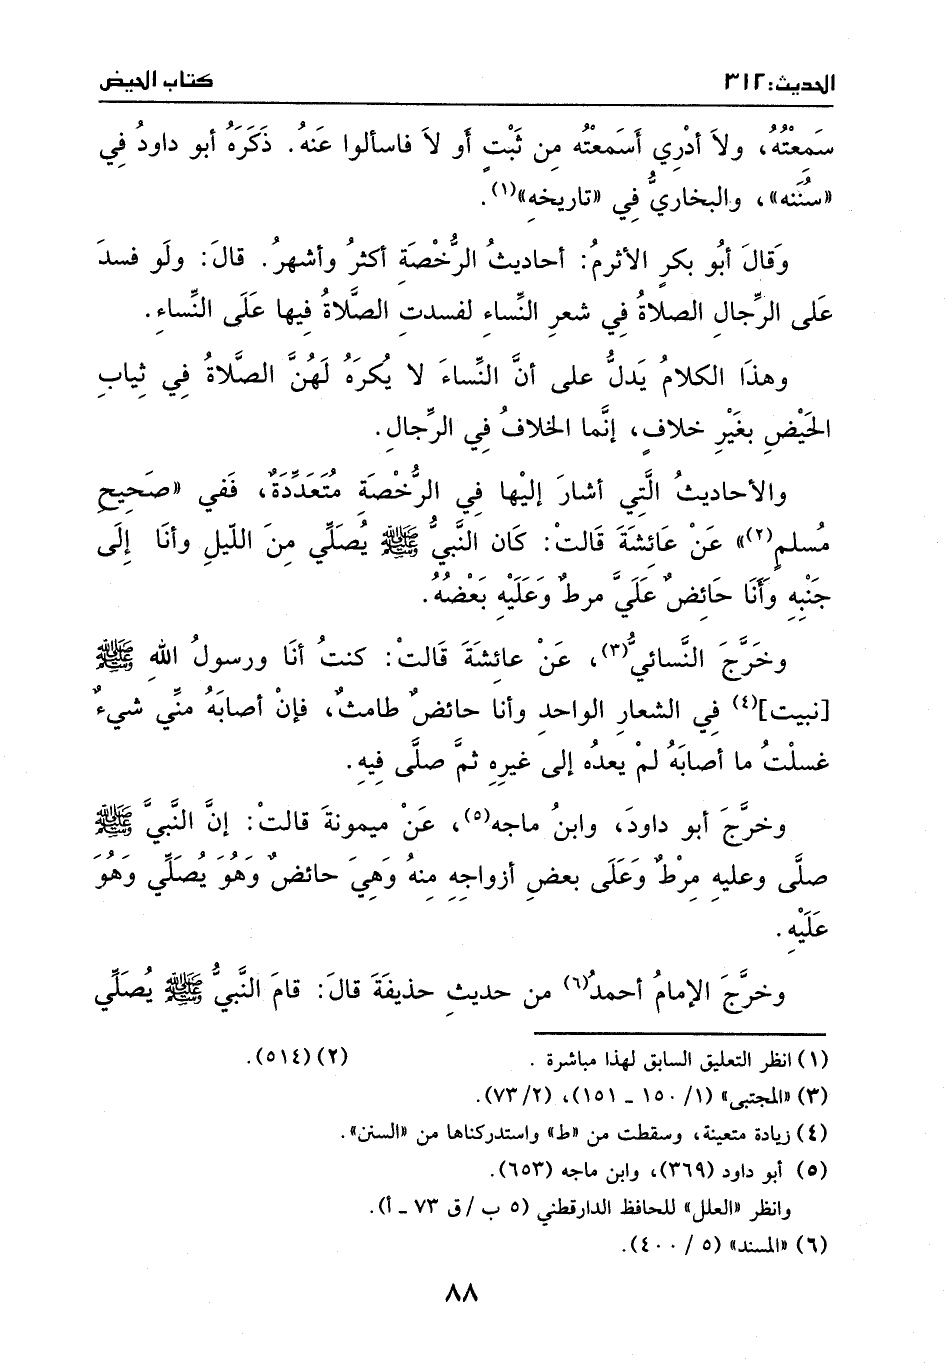 الحديث: ٣١٢
كتاب الحيض
سَمِعْتُهُ، ولاَ أدْرِي أسَمعْتُه مِن ثَبْتٍ أو لاَ فاسألوا عَنهُ. ذَكَرَهُ أبو داودُ فِي
«سُنَنه»، والبخاريُّ فِي «تاريخهِ»(١).
وَقالَ أبُو بكرٍ الأثرمُ: أحاديثُ الرُّخْصَةِ أكثرُ وأشهرُ. قالَ: ولَو فسدَ
عَلى الرِّجالِ الصلاةُ فِي شعرِ النِّساءِ لفسدتِ الصَّلاةُ فيها عَلَى النِّساءِ.
وهذَا الكلامُ يَدلُّ على أنَّ النِّساءَ لا يُكرَهُ لَهُنَّ الصَّلاةُ فِي ثيابِ
الحَيْضِ بغَيْرِ خلافٍ، إنَّما الخلافُ فِي الرِّجالِ.
والأحاديثُ الَّتِي أشارَ إليْها فِي الرُّخْصَةِ مُتَعَدِّدَةٌ، فَفي «صَحِيحِ
مُسلمٍ(٢)» عَنْ عَائِشَةَ قَالتْ: كَان النَّبيُّ ﷺ يُصَلِّي مِنَ اللّيلِ وأنَا إلَى
جَنْبِهِ وَأَنَا حَائِضٌ عَلَيَّ مرطٌ وَعَلَيْهِ بَعْضُهُ.
وخَرَّجَ النَّسائيُّ(٣)، عَنْ عائِشَةَ قَالتْ: كنتُ أنَا ورسولُ اللهِ ﷺ
[نبيت](٤) فِي الشعارِ الواحدِ وأنا حائضٌ طامثٌ، فإنْ أصابَهُ منِّي شيءٌ
غسلْتُ ما أصابَهُ لمْ يعدُه إلى غيرِهِ ثمَّ صلَّى فِيهِ.
وخرَّجَ أبو داودَ، وابنُ ماجه(٥)، عَنْ ميمونةَ قالتْ: إنَّ النَّبيَّ ﷺ
صلَّى وعليهِ مِرْطٌ وَعَلَى بعضِ أزواجِهِ مِنهُ وَهِيَ حائضٌ وَهُوَ يُصَلِّي وَهُوَ
عَلَيْهِ.
وخرَّجَ الإمامُ أحمدُ(٦) من حديثِ حذيفَةَ قالَ: قامَ النَّبيُّ ﷺ يُصَلِّي
(١) انظر التعليق السابق لهذا مباشرة . (٢) (٥١٤).
(٣) «المجتبى» (١/ ١٥٠ ـ ١٥١)، (٢/ ٧٣).
(٤) زيادة متعينة، وسقطت من «ط» واستدركناها من «السنن».
(٥) أبو داود (٣٦٩)، وابن ماجه (٦٥٣).
وانظر «العلل» للحافظ الدارقطني (٥ ب / ق ٧٣ ـ أ).
(٦) «المسند» (٥ / ٤٠٠).
٨٨